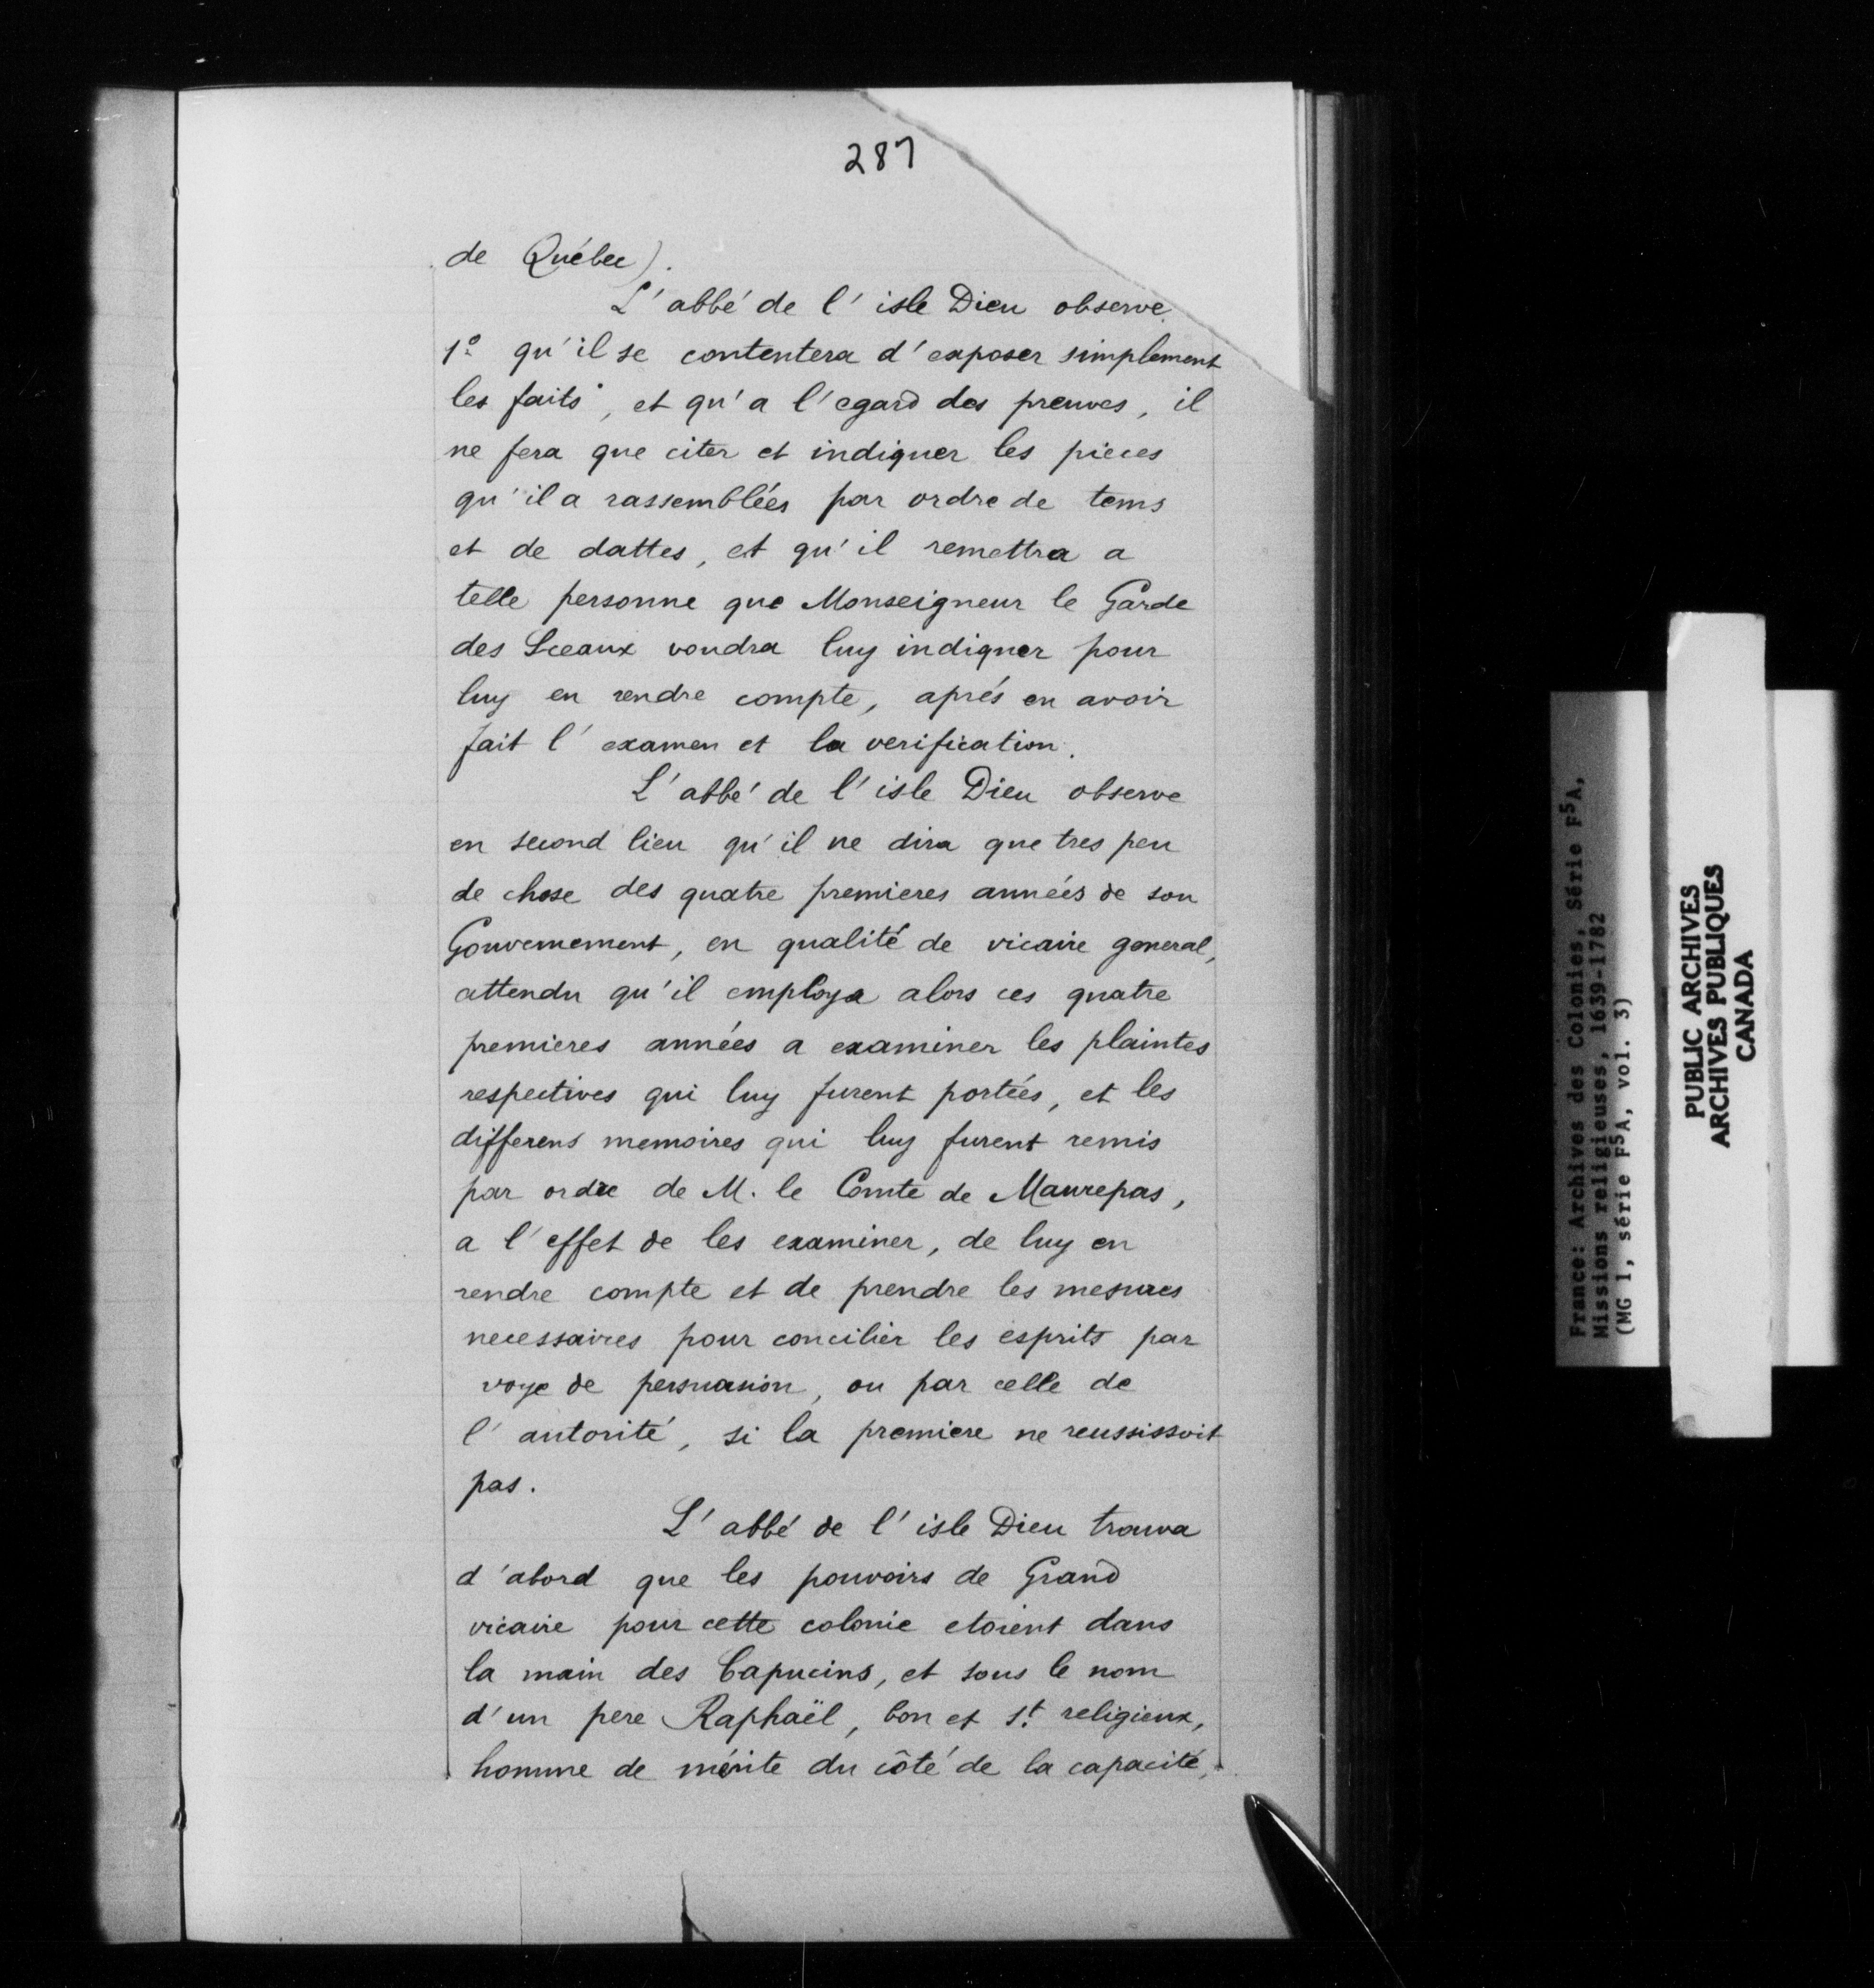 287
de Québec).
L'abbé de l'isle Dieu observe
1º qu'il se contentera d'exposer simplement
les faits, et qu'a l'egard des preuves, il
ne fera que citer et indiquer les pieces
qu'il a rassemblées par ordre de tems
et de dattes, et qu'il remettra a
telle personne que Monseigneur le Garde
des Sceaux voudra luy indiquer pour
luy en rendre compte, aprés en avoir
fait l'examen et la verification.
L'abbé de l'isle Dieu observe
en second lieu qu'il ne dira que tres peu
de chose des quatre premieres années de son
Gouvernement, en qualité de vicaire general,
attendu qu'il employa alors ces quatre
premieres années a examiner les plaintes
respectives qui luy furent portées, et les
differens memoires qui luy furent remis
par ordre de M. le Comte de Maurepas,
a l'effet de les examiner, de luy en
rendre compte et de prendre les mesures
necessaires pour concilier les esprits par
voye de persuasion, ou par celle de
l'autorité, si la premiere ne reussissoit
pas.
L'abbé de l'isle Dieu trouva
d'abord que les pouvoirs de Grand
vicaire pour cette colonie etoient dans
la main des Capucins, et sous le nom
d'un pere Raphaël, bon et st. religieux,
homme de mérite du côté de la capacité,
France: Archives des Colonies, Série F5A,
Missions religieuses, 1639-1782
(MG 1, série F5A, vol. 3)
PUBLIC ARCHIVES
ARCHIVES PUBLIQUES
CANADA